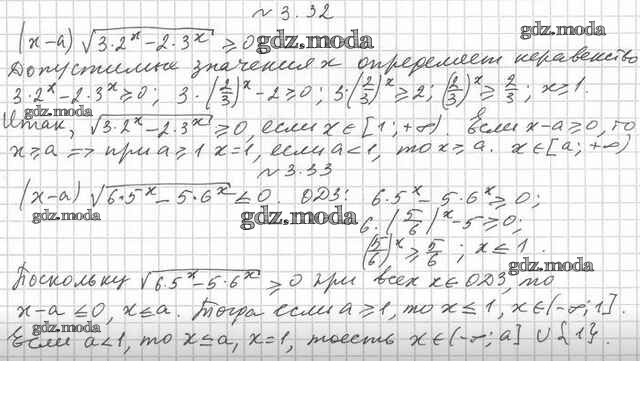 ~ 3.32
(x-a) √3·2ˣ-2·3ˣ ≥ 0
gdz.moda
gdz.moda
Допустимых значения x определяет неравенство
3·2ˣ-2·3ˣ ≥ 0; 3·(2/3)ˣ-2 ≥ 0; 3·(2/3)ˣ ≥ 2; (2/3)ˣ ≥ 2/3; x ≥ 1.
gdz.moda
Итак, √3·2ˣ-2·3ˣ ≥ 0, если x ∈ [1; +∞). Если x-a ≥ 0, то
x ≥ a => при a ≥ 1 x=1, если a<1, то x ≥ a. x ∈ [a; +∞)
~ 3.33
(x-a) √6·5ˣ-5·6ˣ ≤ 0. ОДЗ: 6·5ˣ-5·6ˣ ≥ 0;
gdz.moda
gdz.moda
6·(5/6)ˣ-5 ≥ 0;
(5/6)ˣ ≥ 5/6; x ≤ 1.
gdz.moda
Поскольку √6·5ˣ-5·6ˣ ≥ 0 при всех x ∈ ОДЗ, то
x-a ≤ 0, x ≤ a. Тогда если a ≥ 1, то x ≤ 1, x ∈ (-∞; 1].
gdz.moda
Если a<1, то x ≤ a, x=1, тоесть x ∈ (-∞; a] ∪ {1}.